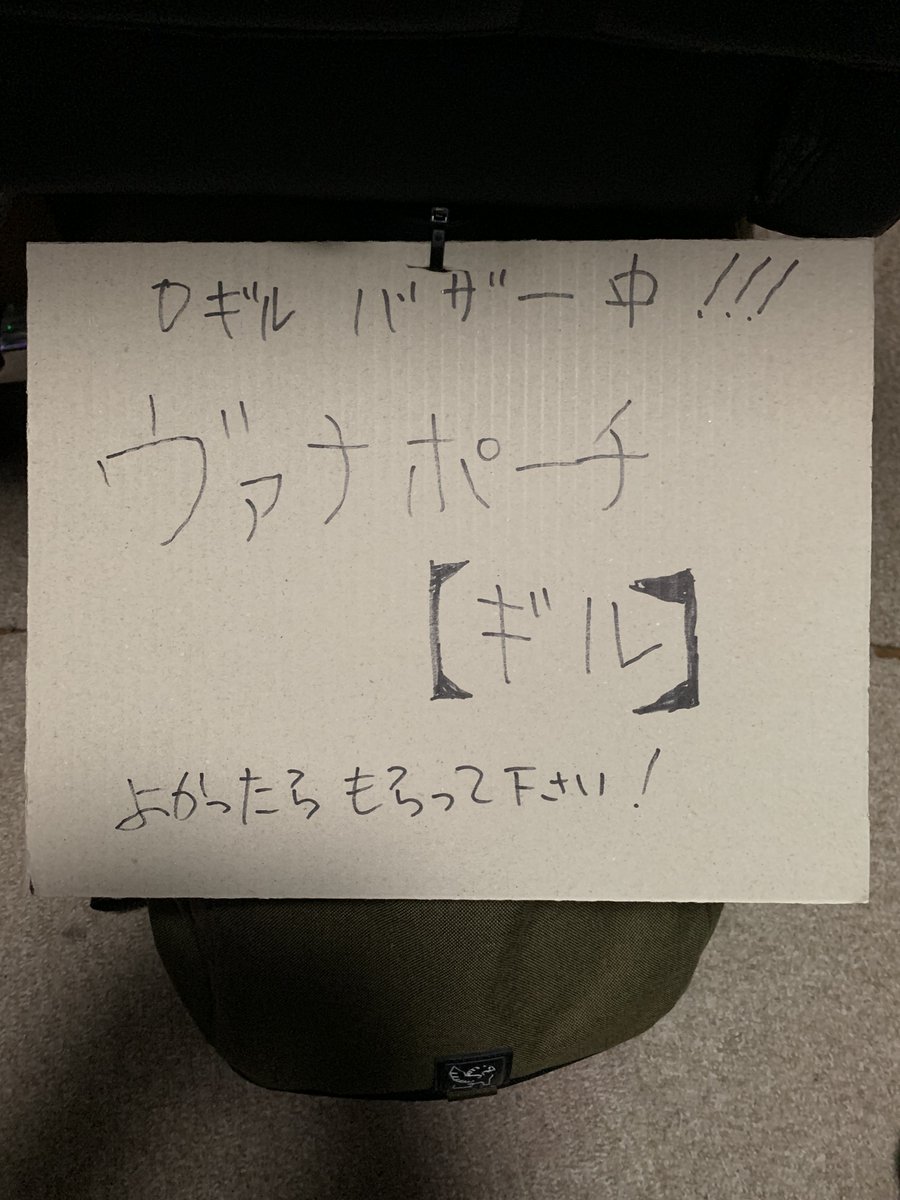 0ギル バザー中!!!
ヴァナポーチ
【ギル】
よかったら もらって下さい!